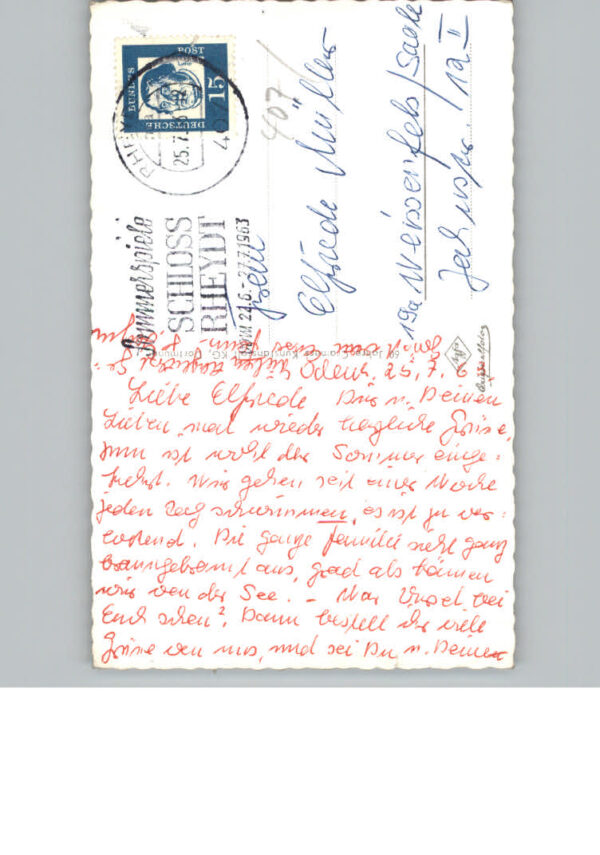 DEUTSCHE
BUNDES
POST
15
RHEYDT
25.7.63
407
Sommerspiele
SCHLOSS
RHEYDT
VOM 22.6.-27.7.1963
407
Elfriede Müller
19a Weissenfels/Saale
12 II
Odenk. 25, 7. 6
Liebe Elfriede Dir u. Deinen
Lieben mal wieder herzliche Grüße,
nun ist wohl der Sommer einge=
kehrt. Wir gehen seit einer Woche
jeden Tag schwimmen, es ist zu ver=
lockend. Die ganze Familie sieht ganz
braungebrannt aus, grad als kämen
wir von der See. - War Ursel bei
Euch schon? Dann bestell ihr viele
Grüße von uns, und sei Du u. Deinen